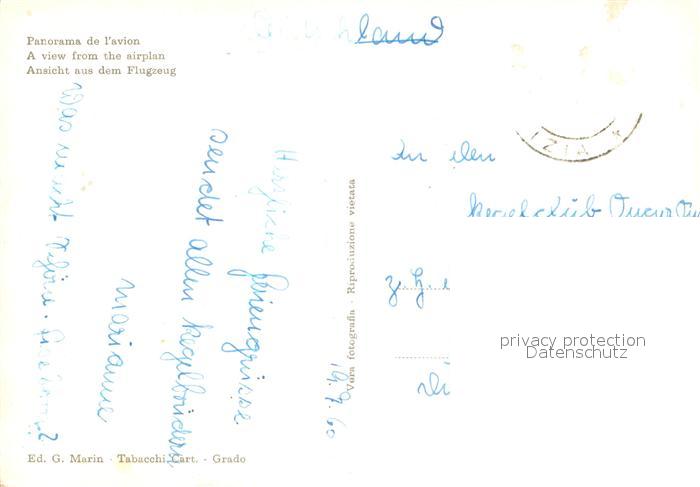 Panorama de l'avion
A view from the airplan
Ansicht aus dem Flugzeug
land
IZIA *
An den
Kegelclub
z. H.
Herzliche Feriengrüsse
sendet allen Kegelbrüdern
Marianne
Was macht
19.7.60
Vera fotografia - Riproduzione vietata
privacy protection
Datenschutz
Ed. G. Marin - Tabacchi Cart. - Grado